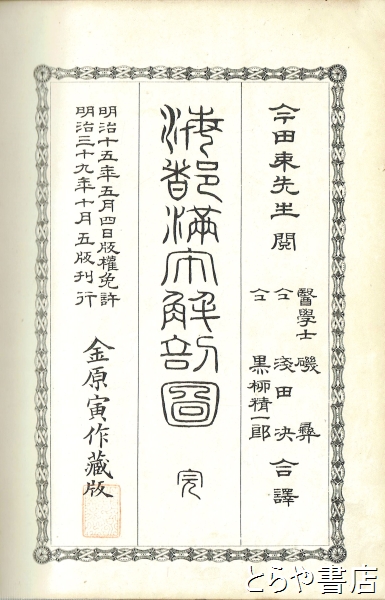 今田束先生閲
醫學士 磯 彝
仝 淺田決
仝 黒柳精一郎
合譯
海都滿氏解剖圖 完
明治十五年五月四日版權免許
明治三十九年十月五版刊行
金原寅作藏版
とらや書店